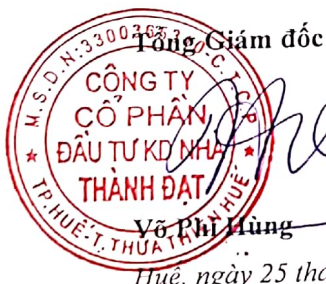 Tổng Giám đốc
M.S.D.N:33003653 C.T.C.P
CÔNG TY
CỔ PHẦN
ĐẦU TƯ KD NHÀ
THÀNH ĐẠT
TP.HUẾ-T.THỪA THIÊN HUẾ
Võ Phi Hùng
Huế, ngày 25 thá